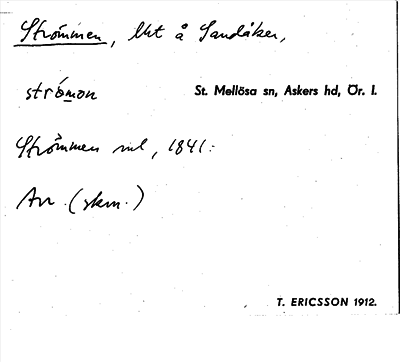 Strömmen, lht å Sandåker,
strömon
St. Mellösa sn, Askers hd, Ör. l.
Strömmen ml, 1841:
Arr. (skm.)
T. ERICSSON 1912.